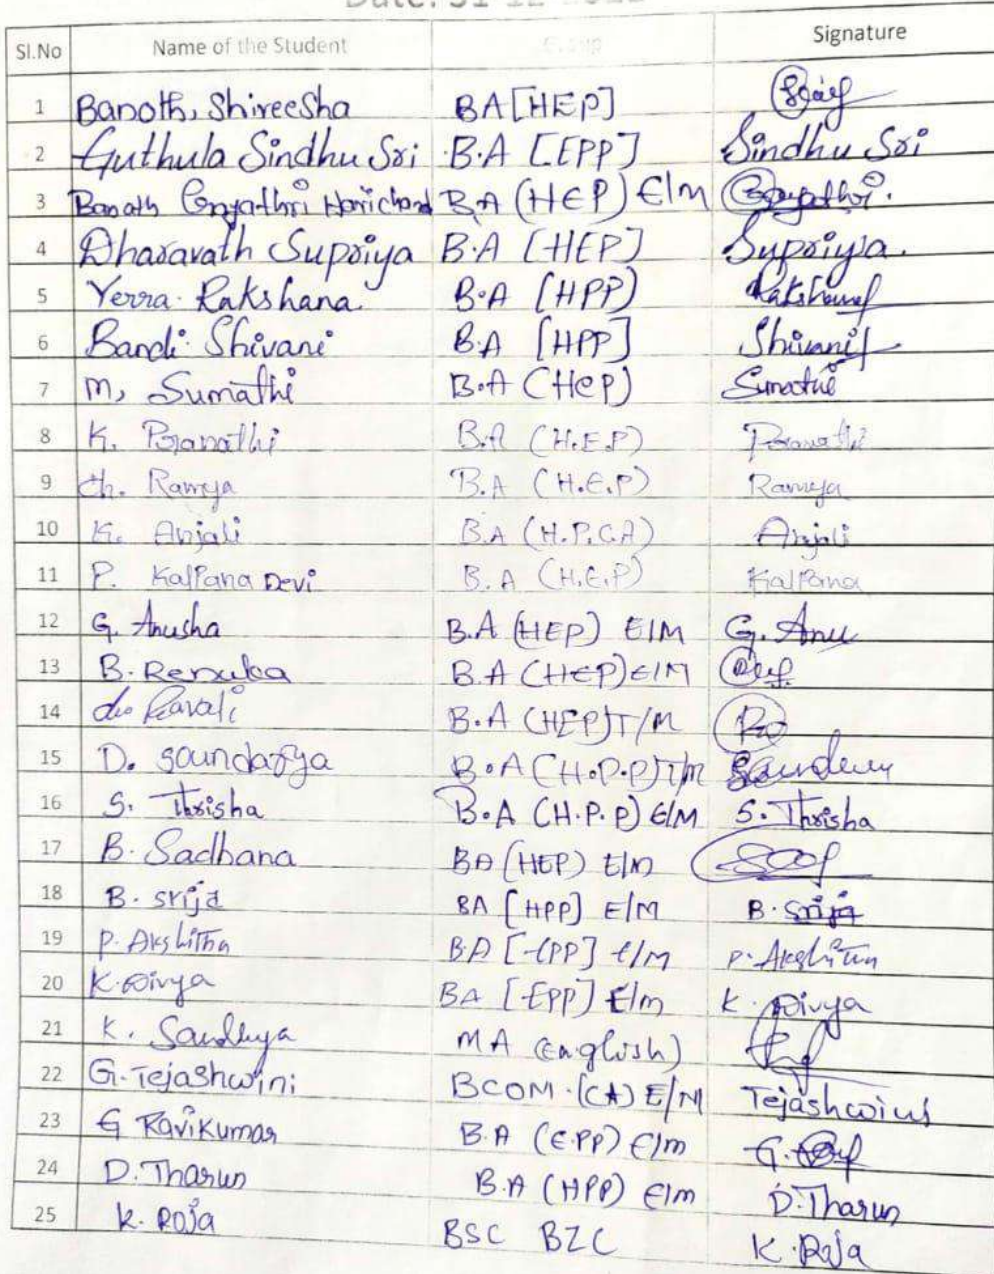 Sl.No Name of the Student Group Signature
1 Banoth, Shireesha BA[HEP]
2 Guthula Sindhu Sri B.A [EPP] Sindhu Sri
3 Banoth Gayathri Harichand B.A (HEP) E/M Gayathri.
4 Dharavath Supriya B.A [HEP] Supriya.
5 Yerra. Rakshana. B.A (HPP) Rakshana
6 Bandi Shivani B.A [HPP] Shivani
7 M, Sumathi B.A (HeP) Sumathi
8 K. Pranathi B.A (H.E.P) Pranathi
9 Ch. Ramya B.A (H.E.P) Ramya
10 K. Anjali B.A (H.P.CA) Anjali
11 P. Kalpana Devi B.A (H.E.P) Kalpana
12 G. Anusha B.A (HEP) E/M G. Anu
13 B. Renuka B.A (HEP) E/M
14 Ravali B.A (HEP) T/M
15 D. Soundarya B.A (H.P.P) T/M
16 S. Thrisha B.A (H.P.P) E/M S. Thrisha
17 B. Sadhana BA (HEP) E/M
18 B. Srija BA [HPP] E/M B. Srija
19 P. Akshitha BA [EPP] E/M P. Akshitha
20 K. Divya BA [EPP] E/M K. Divya
21 K. Sandhya MA (English)
22 G. Tejashwini BCOM.(CA) E/M Tejashwini
23 G Ravikumar B.A (E.PP) E/M G.
24 D. Tharun B.A (HPP) E/M D. Tharun
25 K. Roja BSC BZC K. Roja